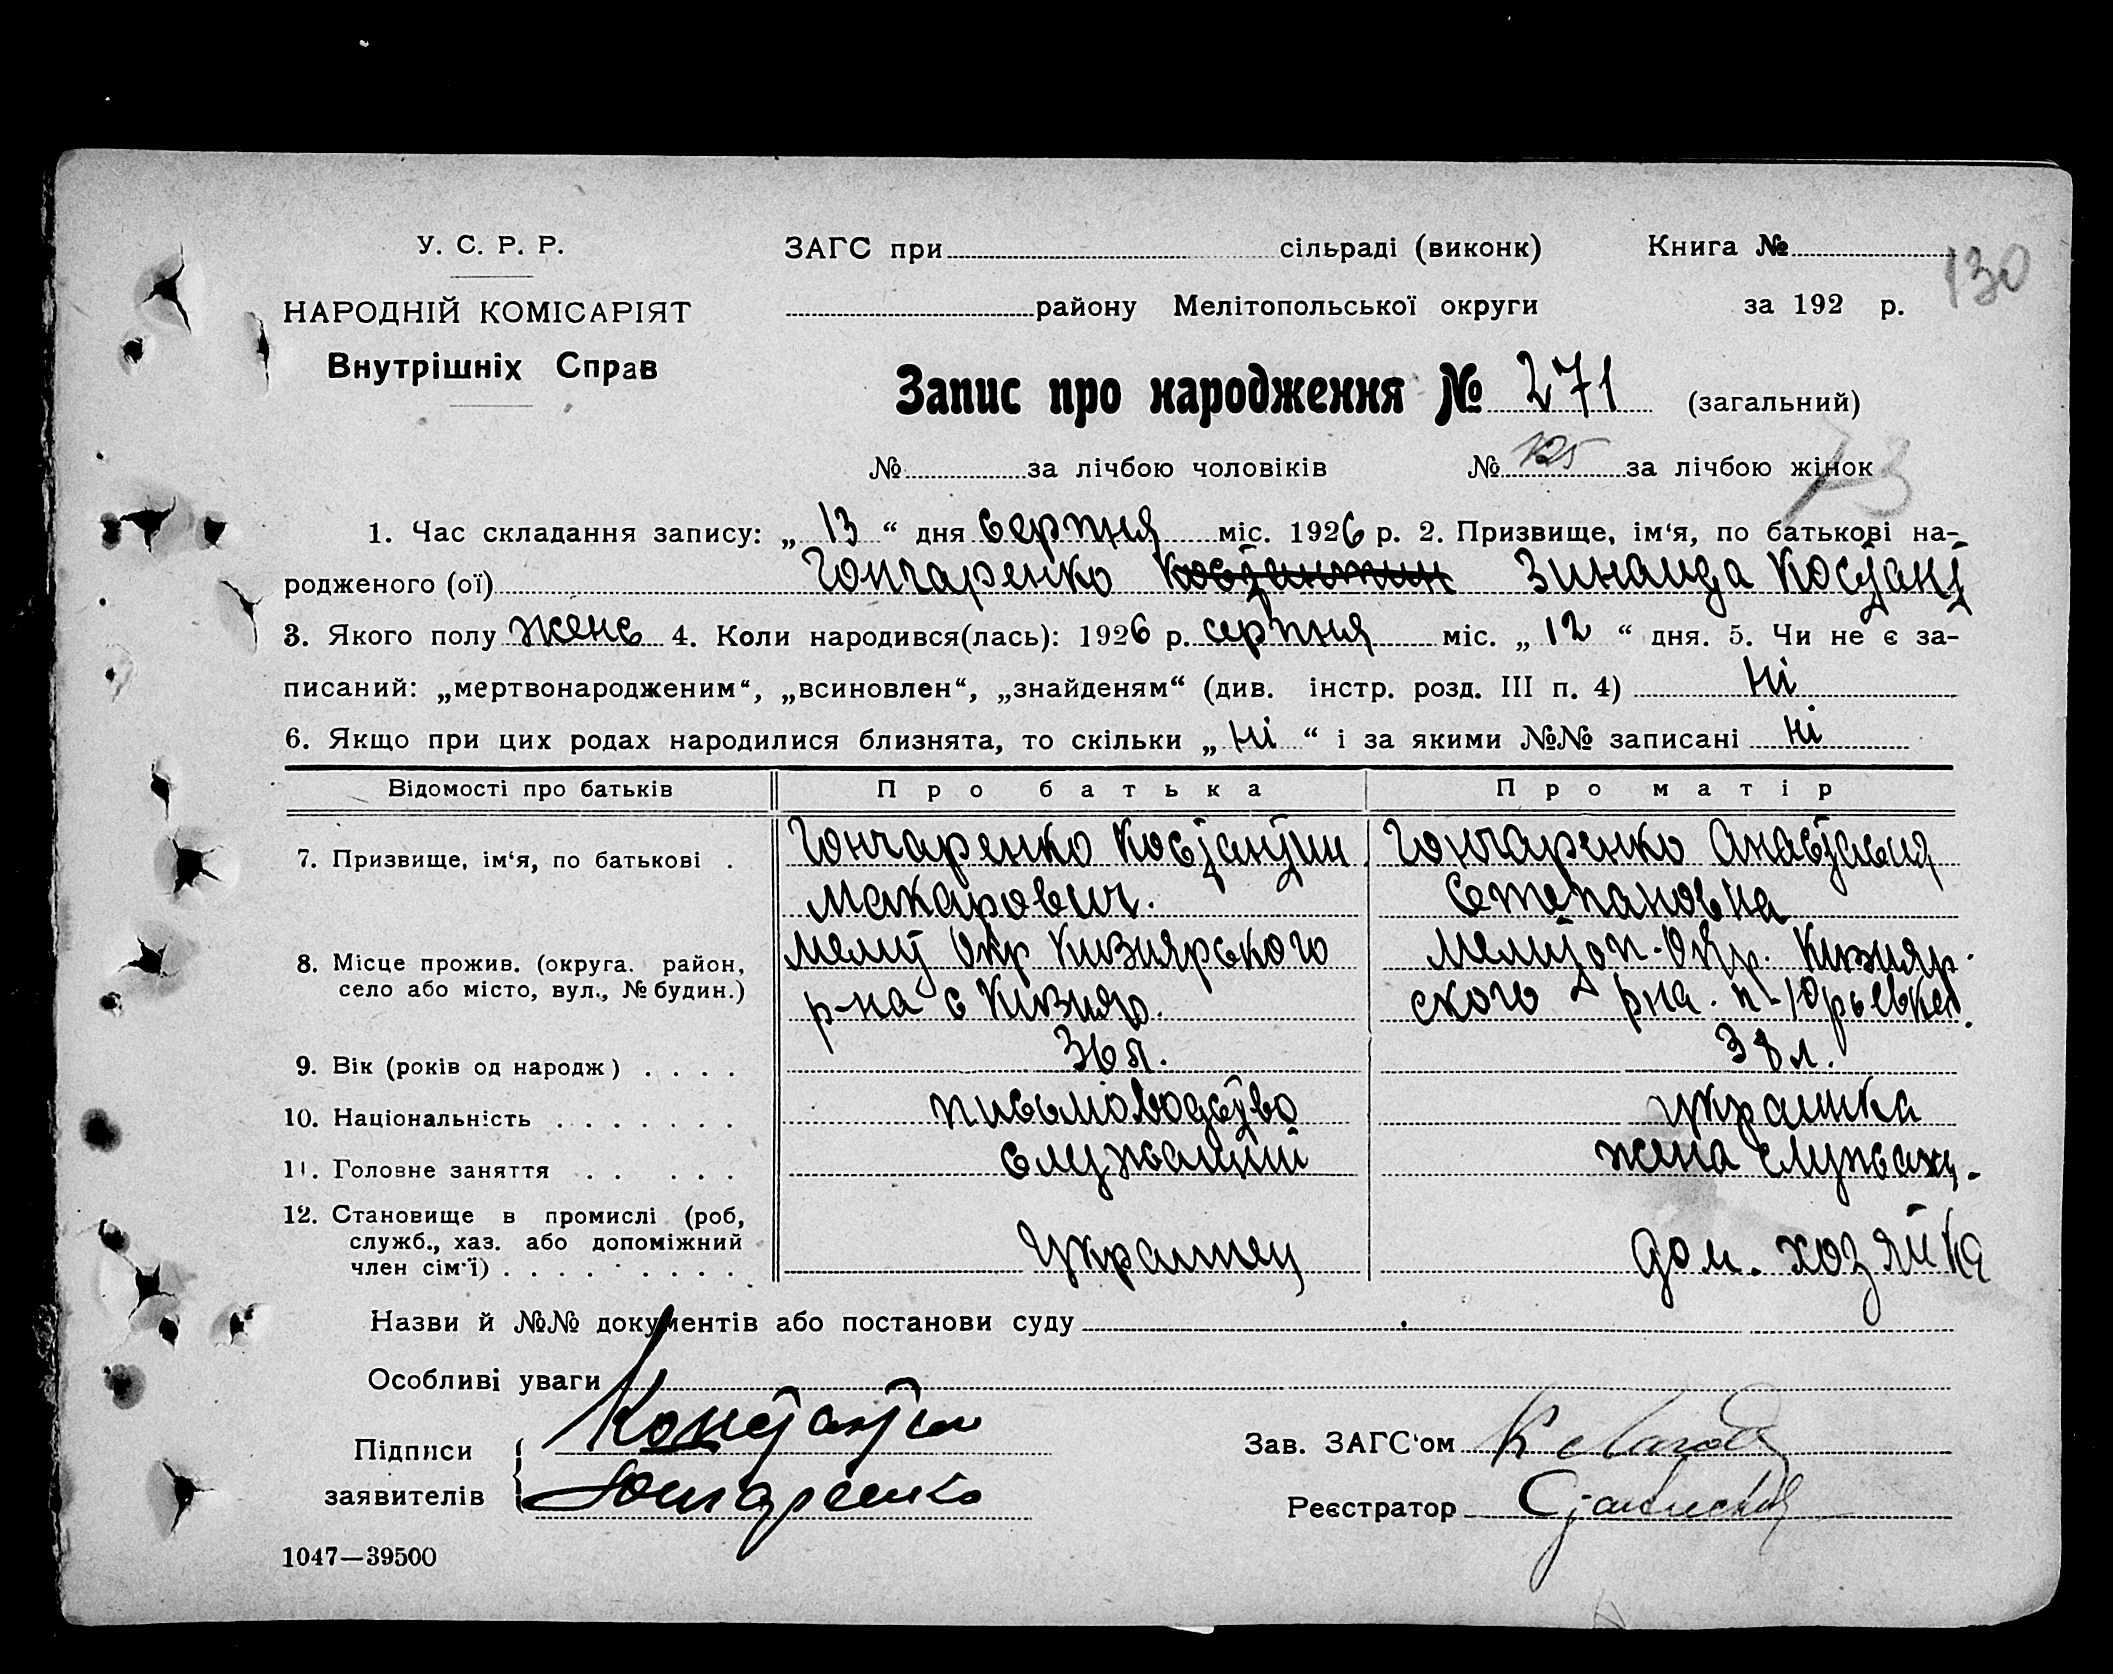 У. С. Р. Р.
НАРОДНІЙ КОМІСАРІЯТ
Внутрішніх Справ
ЗАГС при сільраді (виконк) Книга №
130
району Мелітопольської округи за 192 р.
Запис про народження № 271 (загальний)
№ за лічбою чоловіків № 125 за лічбою жінок
73
1. Час складання запису: „ 13 “ дня серпня міс. 1926 р. 2. Призвище, ім‘я, по батькові на-
родженого (ої) Гончаренко Костантин Зинаида Костант
3. Якого полу женс 4. Коли народився(лась): 1926 р. серпня міс. „ 12 “ дня. 5. Чи не є за-
писаний: „мертвонародженим“, „всиновлен“, „знайденям“ (див. інстр. розд. III п. 4) Ні
6. Якщо при цих родах народилися близнята, то скільки „ Ні “ і за якими №№ записані Ні
Відомості про батьків Про батька Про матір
7. Призвище, ім‘я, по батькові . Гончаренко Костантин Гончаренко Анастасия
Макарович. Степановна
8. Місце прожив. (округа. район, Мелит Окр Кизиярського Мелитоп. Окр. Кизияр
село або місто, вул., № будин.) р-на с Кизияр. ского рна. п. Юрьевка
9. Вік (років од народж) . . . . 36 л. 38 л.
10. Національність . . . . . . . письмоводство украинка
11. Головне заняття . . . . . служащий жена служащ.
12. Становище в промислі (роб,
служб., хаз. або допоміжний
член сім‘ї) . . . . . . . . . Украинец дом. хозяйка
Назви й №№ документів або постанови суду
Особливі уваги
Підписи Константин Зав. ЗАГС‘ом
заявителів Гончаренко Реєстратор
1047—39500